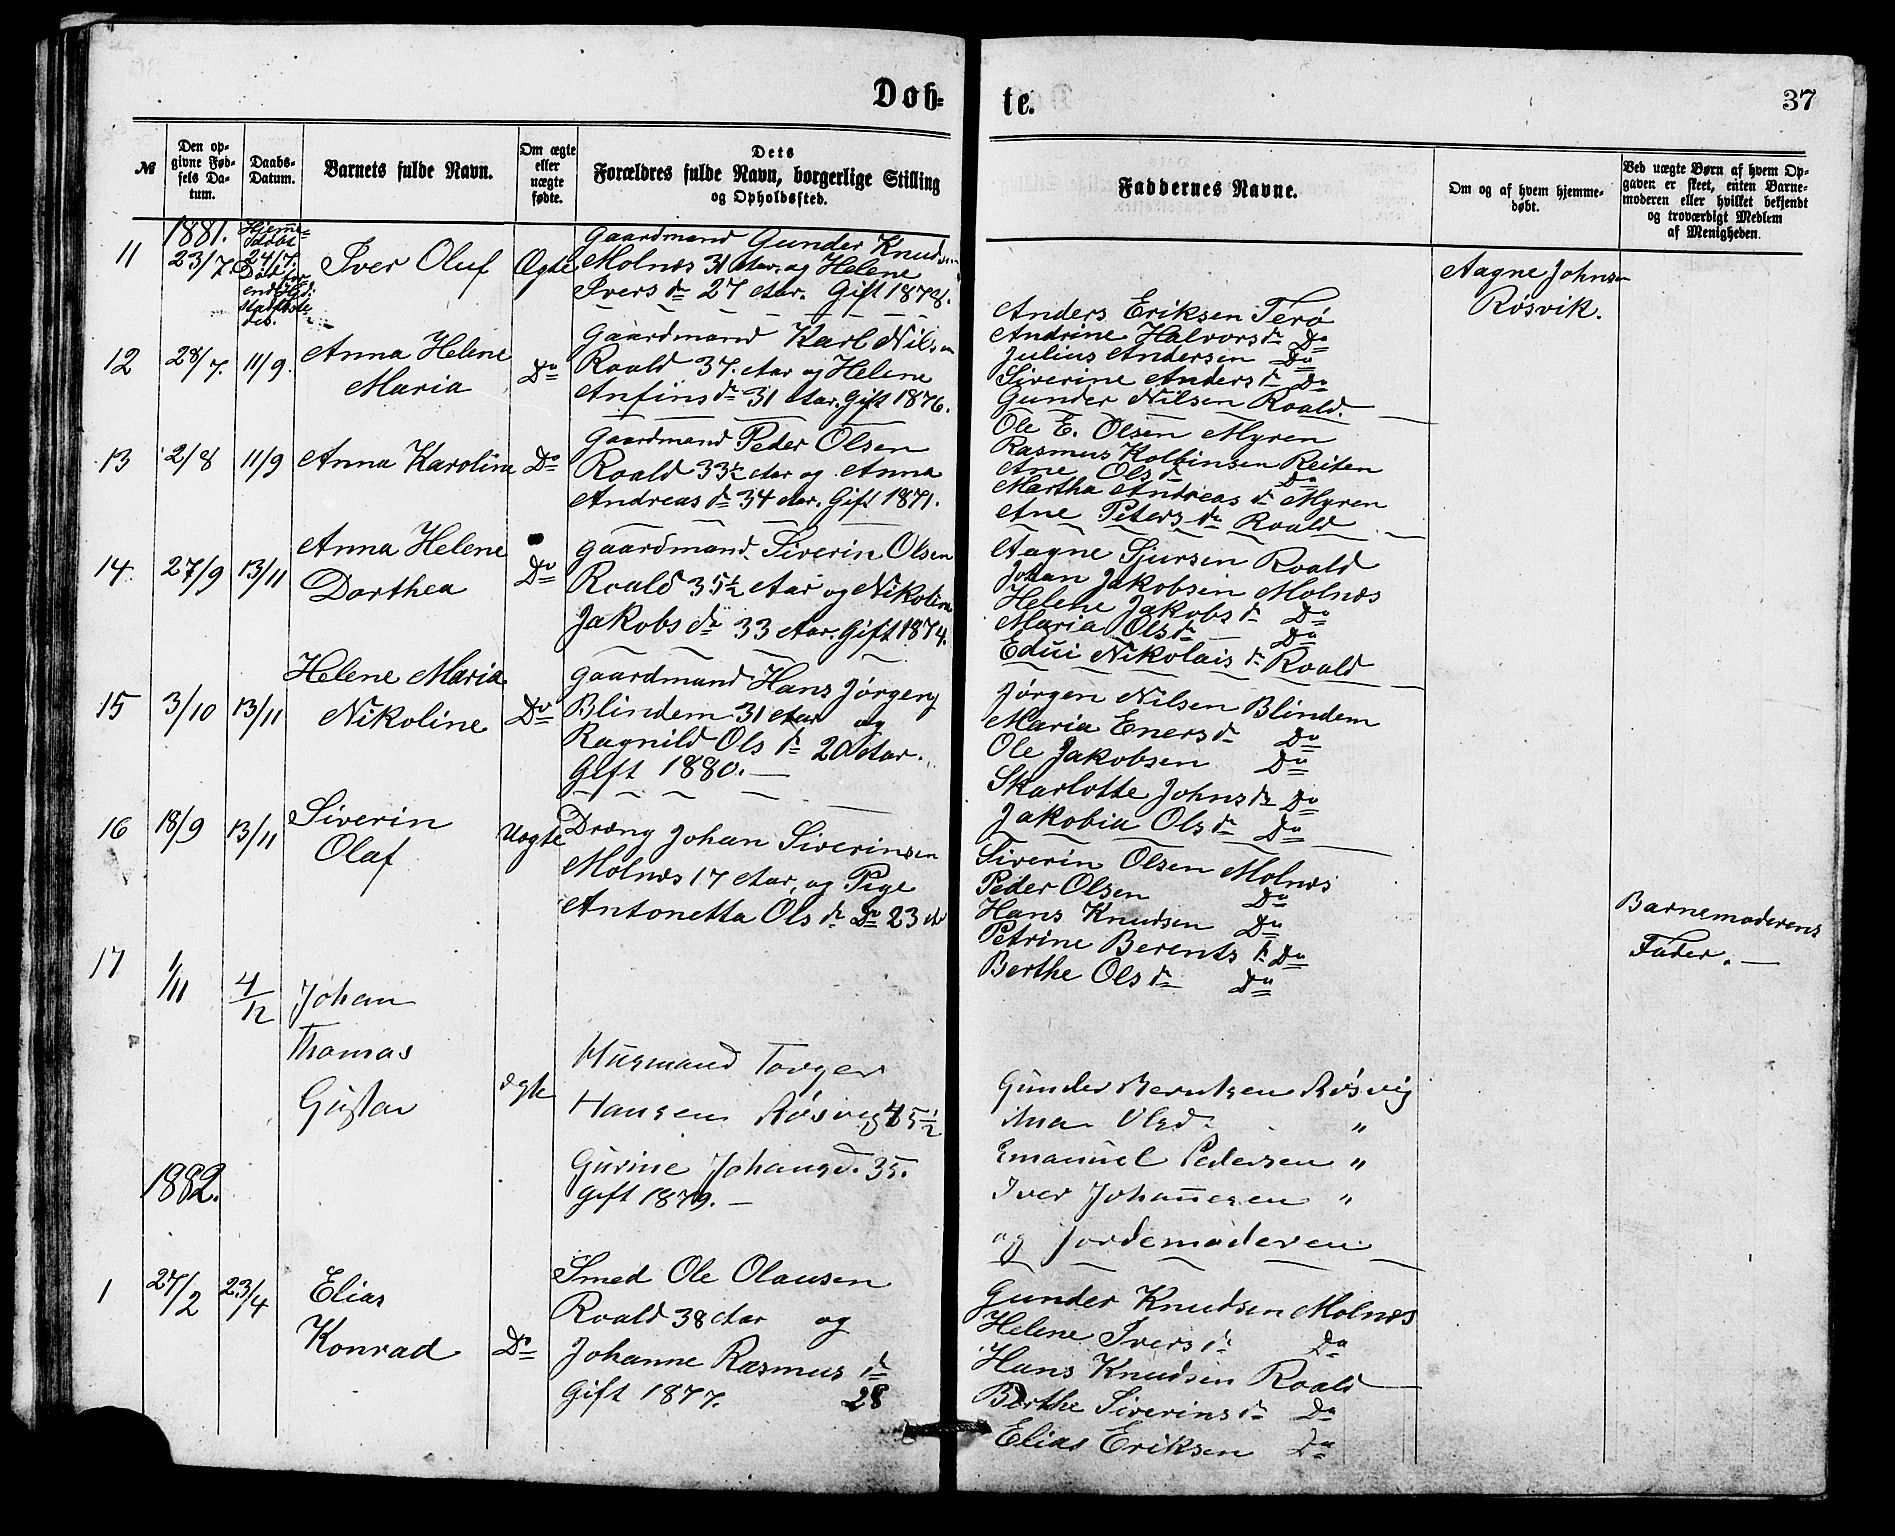 Døb-
te.
37
№
Den op-
givne Fød-
sels Da-
tum.
Daabs-
Datum.
Barnets fulde Navn.
Om ægte
eller
uægte
fødte.
Dets
Forældres fulde Navn, borgerlige Stilling
og Opholdssted.
Faddernes Navne.
Om og af hvem hjemme-
døbt.
Ved uægte Børn af hvem Op-
gaven er skeet, enten Barne-
moderen eller hvilket bekjendt
og troværdigt Medlem
af Menigheden.
1881.
11
23/7
Hjeme-
døbt
24/7.
Død før
Iver Oluf
Ægte
Gaardmand Gunder Knudsen
Molnæs 31 Aar og Helene
Ivers dr 27 Aar. Gift 1878.
Aagne Johnsen
Røsvik.
12
28/7.
11/9.
Anna Helene
Maria
Do
Gaardmand Karl Nilsen
Roald 37. Aar og Helene
Anfins dr 31 Aar. Gift 1876.
Anders Eriksen Terø
Andrine Halvors dr Do
Julius Andersen Do
Siverine Anders dr Do
Gunder Nilsen Roald.
13
2/8
11/9
Anna Karolina
Do
Gaardmand Peder Olsen
Roald 33½ Aar og Anna
Andreas dr 34 Aar. Gift 1871.
Ole E. Olsen Myren
Rasmus Kolbinsen Reiten
Ane Ols dr Do
Martha Andreas dr Myren
Ane Peters dr Roald
14.
27/9
13/11
Anna Helene
Dorthea
Do
Gaardmand. Siverin Olsen
Roald 35½ Aar og Nikoline
Jakobs dr 33 Aar. Gift 1874.
Aagne Sjursen Roald
Johan Jakobsen Molnæs
Helene Jakobs dr Do
Maria Ols dr Do
Edui Nikolais dr Roald
15
3/10
13/11
Helene Maria
Nikoline
Do
Gaardmand Hans Jørgens
Blindem 31 Aar og
Ragnild Ols dr Aar.
Gift 1880.
Jørgen Nilsen Blindem
Maria Eners dr Do
Ole Jakobsen Do
Skarlotte Johns dr Do
Jakobia Ols dr Do
16
18/9
13/11
Siverin
Olaf
Uægte
Dræng Johan Siverinsen
Molnæs 17 Aar, og Pige
Antonetta Ols dr Do 23 Ar
Siverin Olsen Molnæs
Peder Olsen Do
Hans Knudsen Do
Petrine Berents dr Do
Berthe Ols dr Do
Barnemoderens
Fader.
17
1/11
4/12
Johan
Thomas
Gustav
ægte
Husmand Torger
Hansen Røsvig 45½
Gurine Johansd. 35.
Gift 1879.
Gunder Berntsen Røsvig
Ana Olsd. "
Emanuel Pedersen "
Iver Johannesen "
og Jordemoderen
1882.
1
27/2
23/4
Elias
Konrad
Do
Smed Ole Olausen
Roald 38 Aar og
Johanne Rasmus dr
Gift 1877. 28
Gunder Knudsen Molnæs
Helene Ivers dr Do
Hans Knudsen Roald
Berthe Siverins dr Do
Elias Eriksen Do